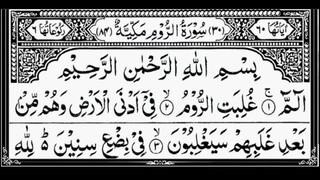 اٰيَاتُهَا ٦٠ (٣٠) سُوْرَةُ الرُّوْمِ مَكِّيَّةٌ (٨٤) رُكُوْعَاتُهَا ٦
بِسْمِ اللّٰهِ الرَّحْمٰنِ الرَّحِيْمِ
الٓمّٓ ۝١ غُلِبَتِ الرُّوْمُ ۝٢ فِيْٓ اَدْنَى الْاَرْضِ وَهُمْ مِّنْۢ
بَعْدِ غَلَبِهِمْ سَيَغْلِبُوْنَ ۝٣ فِيْ بِضْعِ سِنِيْنَ ۬ؕ لِلّٰهِ